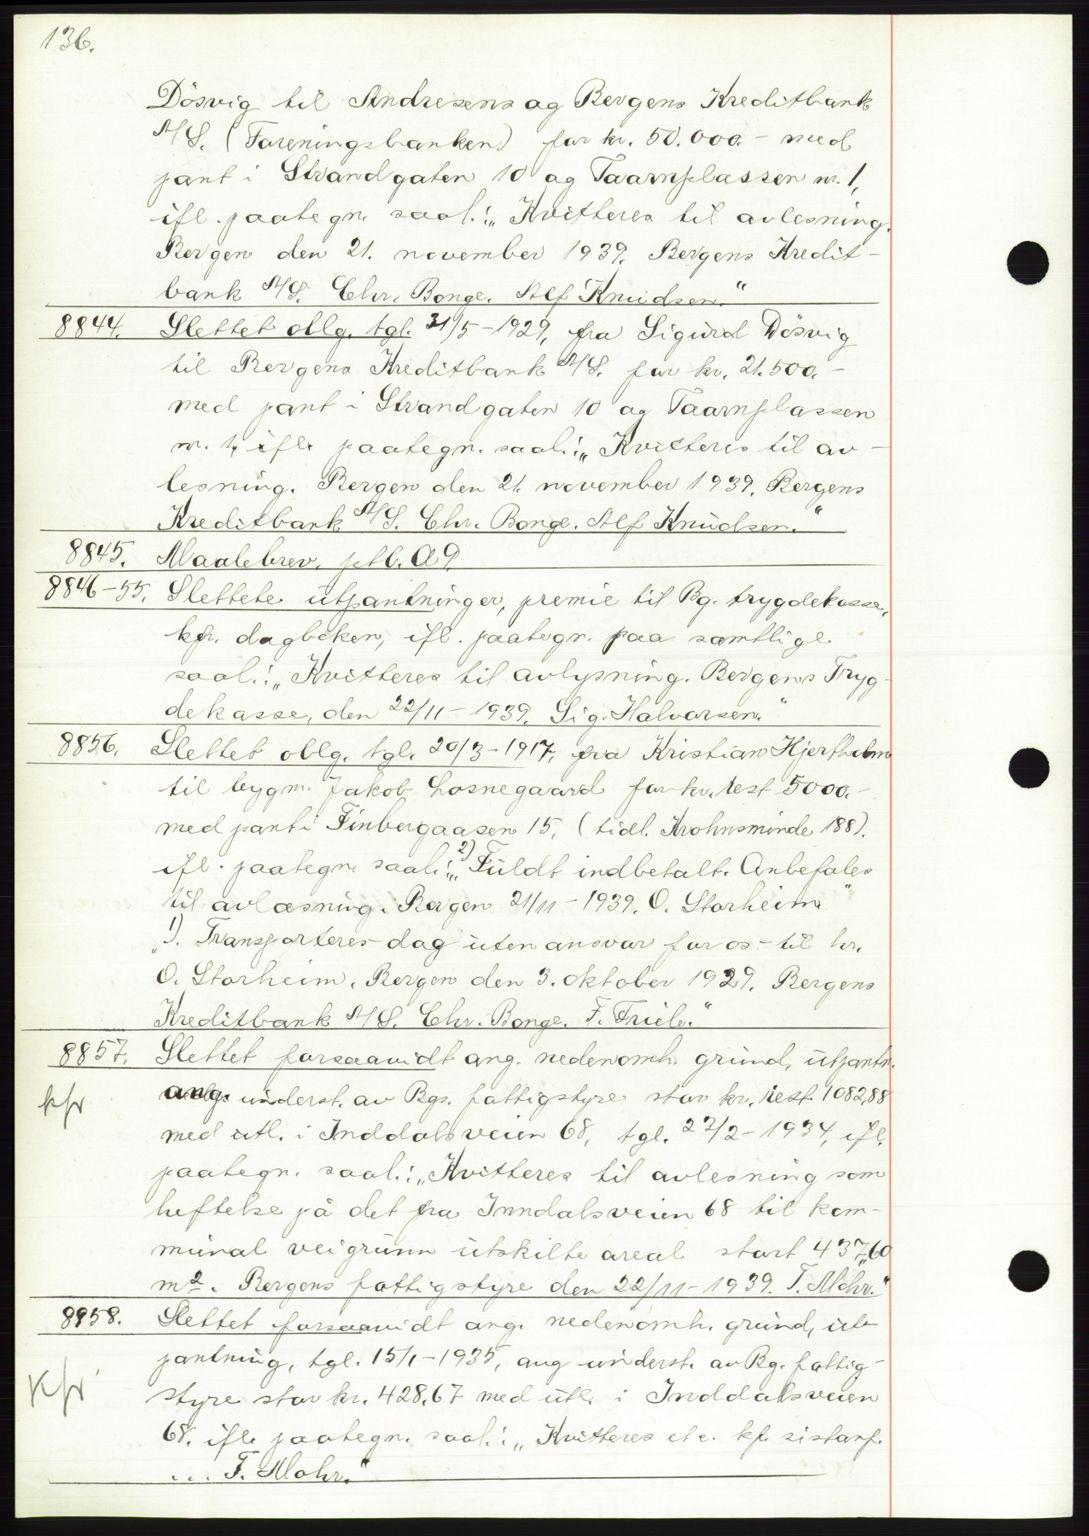 136.
Dösvig til Andresens og Bergens Kreditbank
A/S. (Foreningsbanken) for kr. 50.000.- med
pant i Strandgaten 10 og Taarnplassen nr. 1,
ifl. paategn. saal.: „Kvitteres til avlesning.
Bergen den 21. november 1939. Bergens Kredit-
bank A/S. Chr. Bonge. Alf Knudsen."
8844. Slettet oblg. tgl. 31/5-1929, fra Sigurd Dösvig
til Bergens Kreditbank A/S. for kr. 21.500.-
med pant i Strandgaten 10 og Taarnplassen
nr. 1, ifl. paategn. saal.: „Kvitteres til av-
lesning. Bergen den 21. november 1939. Bergens
Kreditbank A/S. Chr. Bonge. Alf Knudsen."
8845. Maalebrev, ptb. A9.
8846-55. Slettete utpantninger, premie til Bg. trygdekasse,
kfr. dagboken, ifl. paategn. paa samtlige
saal.: „Kvitteres til avlysning. Bergens Tryg-
dekasse, den 22/11-1939. Sig. Halvorsen."
8856. Slettet oblg. tgl. 20/3-1917, fra Kristian Hjertholm
til bygm. Jakob Losnegaard for kr. rest 5000.-
med pant i Finbergaasen 15, (tidl. Krohnsminde 188).
ifl. paategn. saal.: „2) Fuldt indbetalt. Anbefales
til avlæsning. Bergen 21/11-1939. O. Storheim"
„1). Transporteres dag uten ansvar for os - til hr.
O. Storheim. Bergen den 3. oktober 1929. Bergens
Kreditbank A/S. Chr. Bonge. F. Friele."
8857. Slettet forsaavidt ang. nedenomh. grund, utpantn.
ang. underst. av Bgs. fattigstyre stor kr. rest 1082,88
kfr
med utl. i Inddalsveien 68, tgl. 27/2-1934, ifl.
paategn. saal.: „Kvitteres til avlesning som
heftelse på det fra Inndalsveien 68 til kom-
munal veigrunn utskilte areal stort 437,60
m2. Bergens fattigstyre den 22/11-1939. F. Mohr."
8958. Slettet forsaavidt ang. nedenomh. grund, ut-
pantning, tgl. 15/1-1935, ang underst. av Bg. fattig-
kfr
styre stor kr. 428,67 med utl. i Inddalsveien
68. ifl. paategn. saal.: „Kvitteres etc. kfr. sistanf.
... F. Mohr."